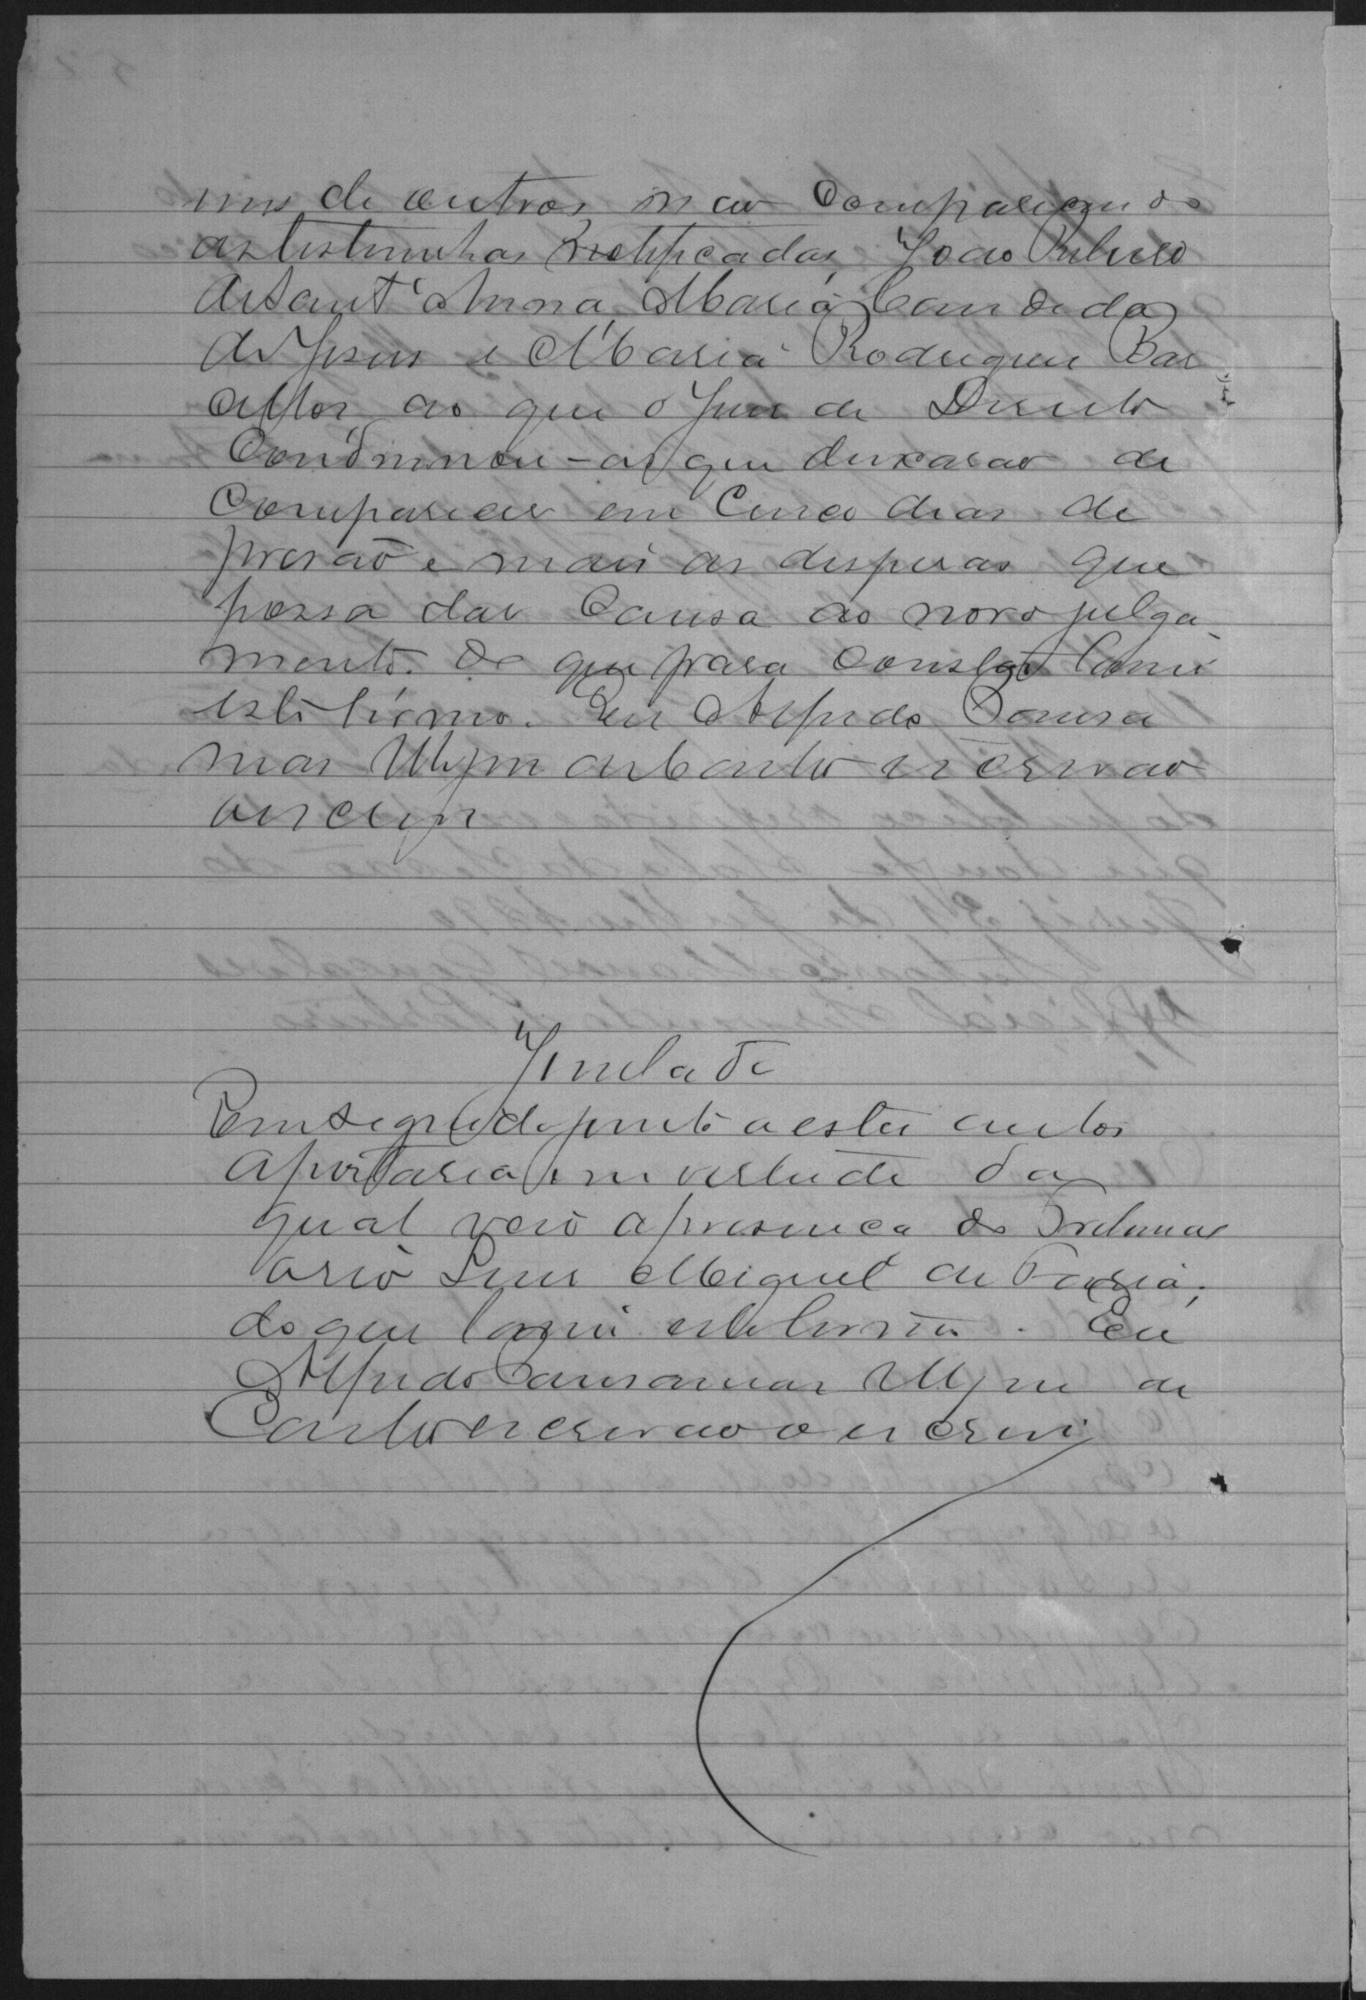 uns de outros não comparecendo
as testemunhas notificadas, João
de Sant'Anna, Maria Candida
de Jesus e Maria Rodrigues Bar
ao que o Juiz de Direito
Condemnou-as que deixarão de
Comparecer em Cinco dias de
prisão e mais as despesas que
possa dar Causa ao novo julga
mento. Do que para constar lavrei
este termo. Eu Alfredo
de Castro escrivão
o escrevi
Juntada
Em seguida junto a estes autos
a portaria em virtude da
qual veio a presença do Tribunal
o réo Luis Miguel de Faria,
do que lavrei este termo. Eu
Alfredo de
Castro escrivão o escrevi